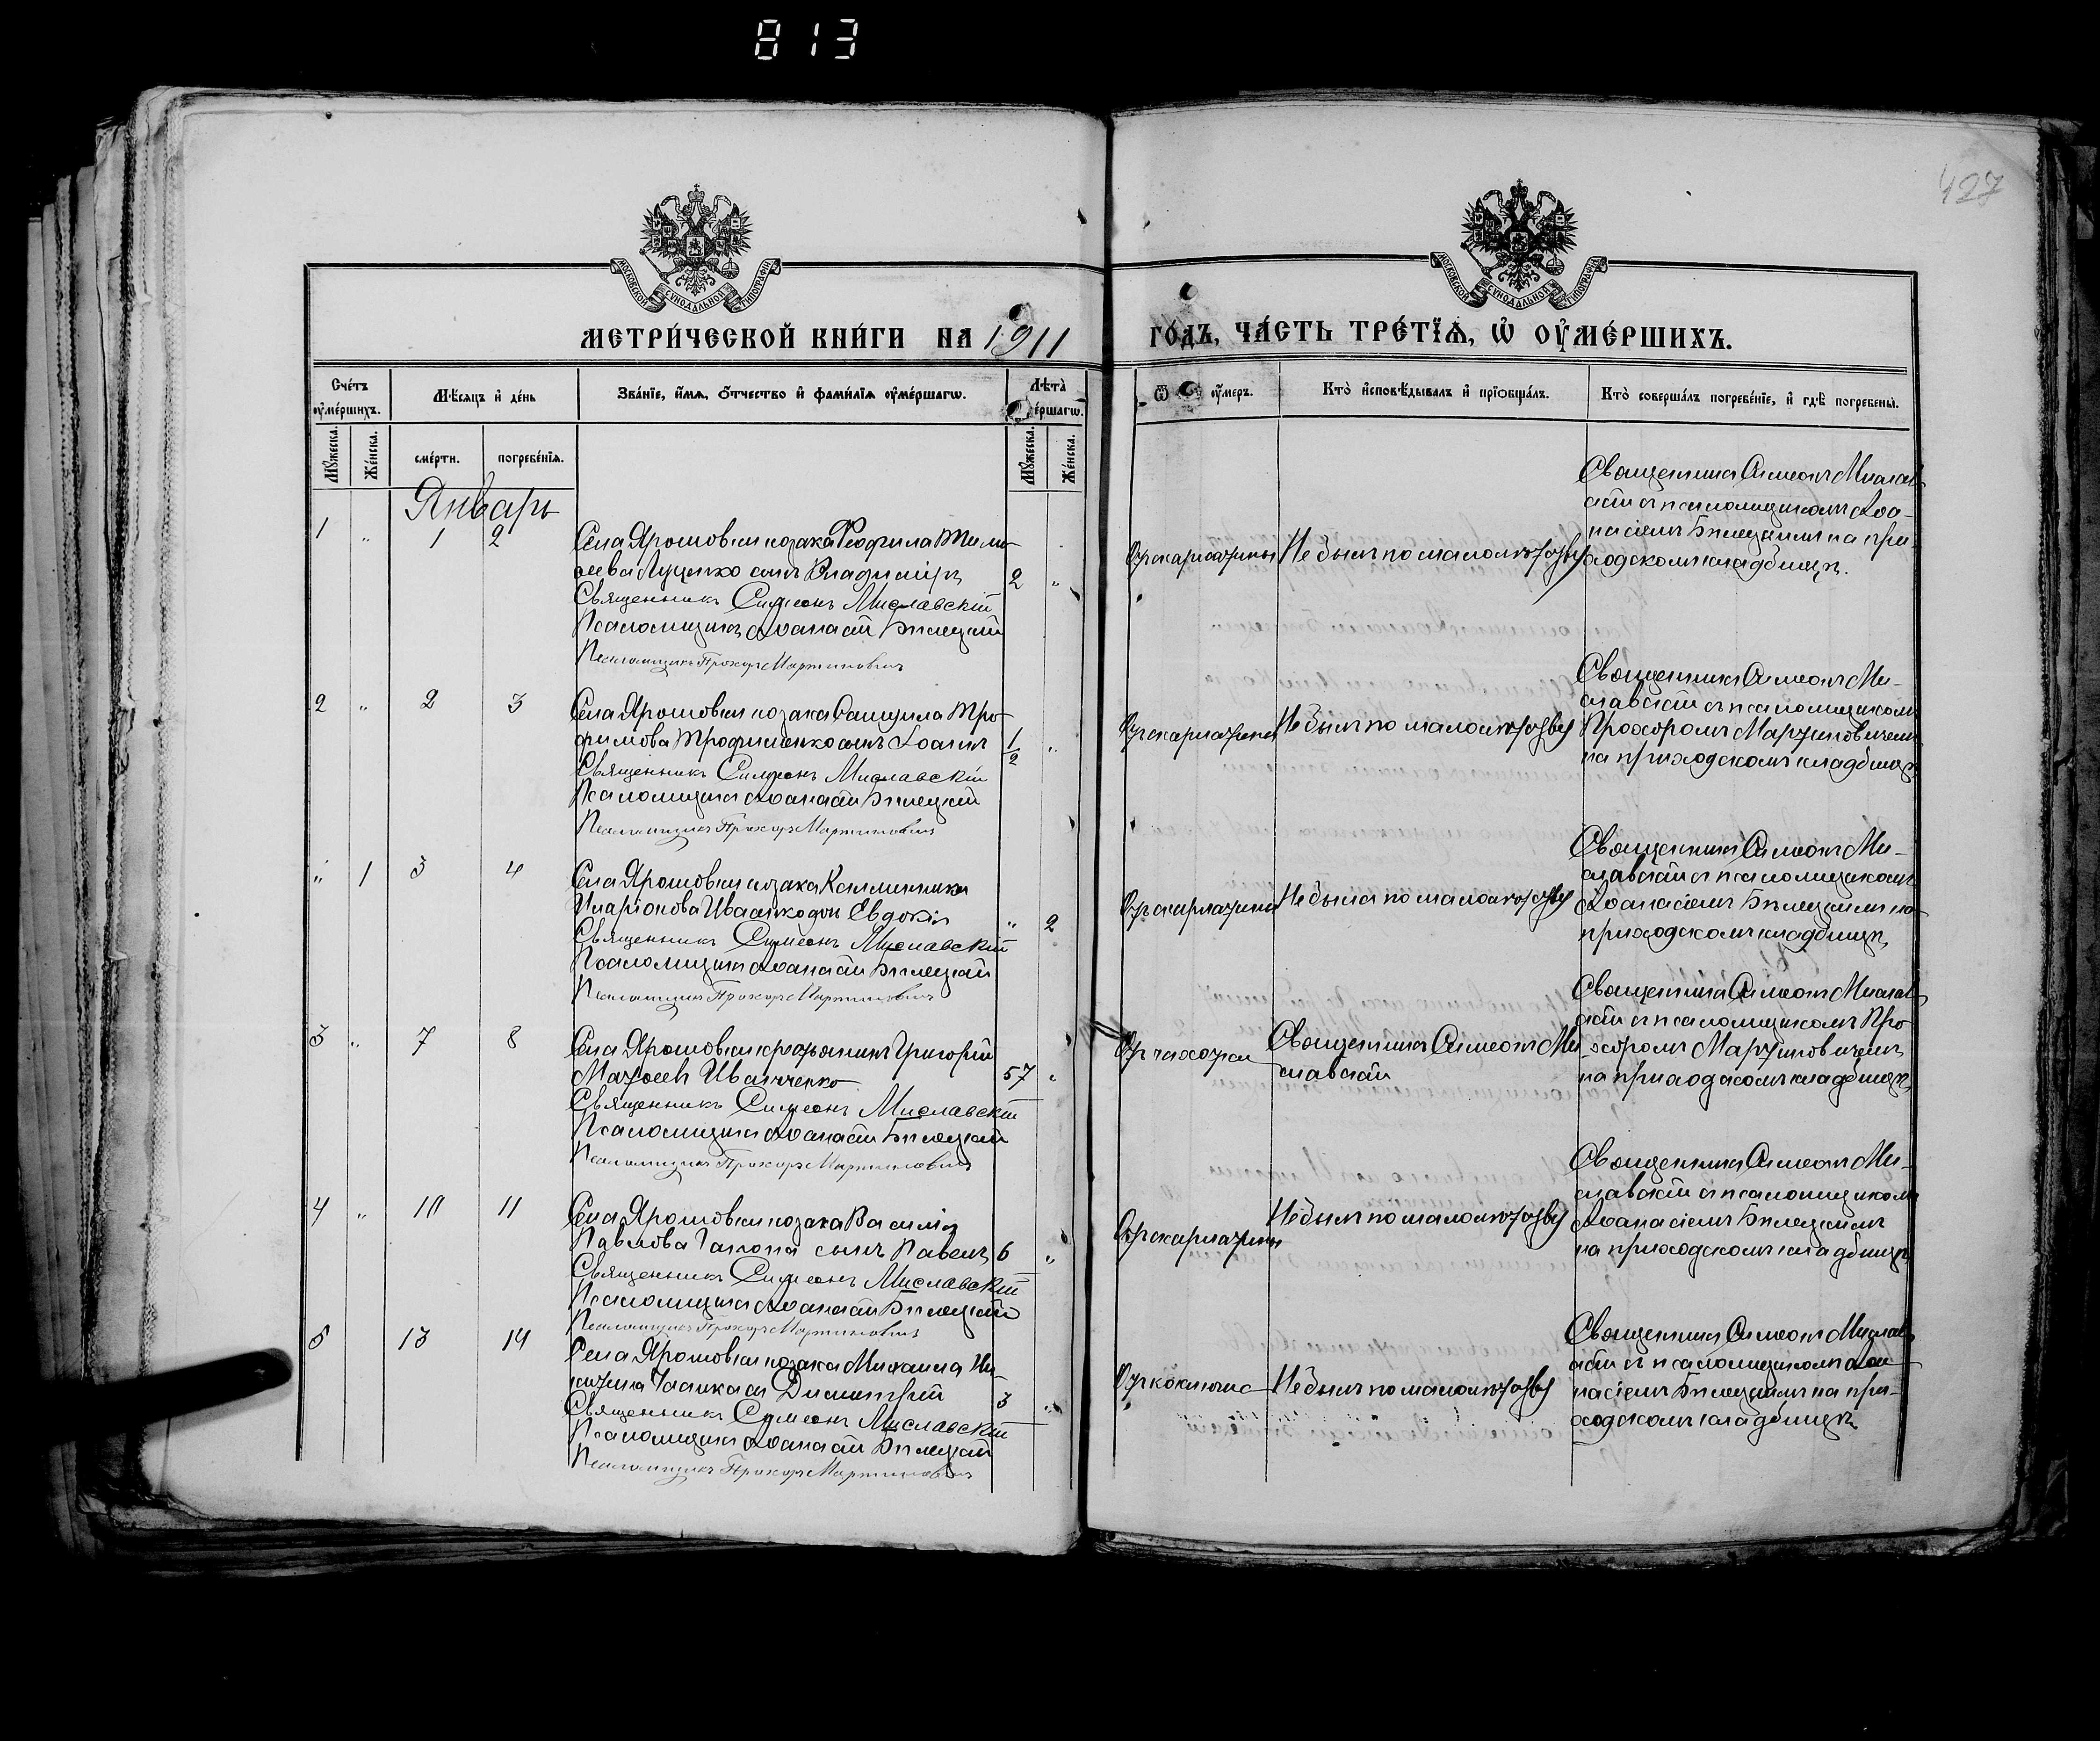 813
427
МОСКОВСКОЙ СѴНОДАЛЬНОЙ ТИПОГРАФІИ
МОСКОВСКОЙ СѴНОДАЛЬНОЙ ТИПОГРАФІИ
МЕТРИ́ЧЕСКОЙ КНИ́ГИ НА 1911 ГО́ДЪ, ЧА́СТЬ ТРЕ́ТЇѦ, Ѡ҆ ОУ҆МЕ́РШИХЪ.
Сче́тъ оу҆ме́ршихъ.
Мѣ́сяцъ и҆ де́нь
Зва́нїе, и҆́мѧ, ѻ҆́тчество и҆ фами́лїѧ оу҆ме́ршагѡ.
Лѣта̀ ершагѡ.
Ѿ оу҆́меръ.
Кто̀ и҆сповѣ́дывалъ и҆ прїѻбща́лъ.
Кто̀ соверша́лъ погребе́нїе, и҆ гдѣ̀ погребены̀.
Му́жеска.
Же́нска.
сме́рти.
погребе́нїѧ.
Му́жеска.
Же́нска.
Январь
1 " 1 2
Села Ярошовки козака Феофила Тимо-
ѳеева Луценко сынъ Владиміръ 2 "
Священникъ Симеонъ Миславскій
Псаломщикъ Аѳанасій Бѣлецкій
Псаломщикъ Прохоръ Мартиновичъ
Отъ скарлатины
Не былъ по малолѣтству
Священникъ Симеонъ Мислав-
скій съ псаломщикомъ Аѳа-
насіемъ Бѣлецкимъ на при-
ходскомъ кладбищѣ.
2 " 2 3
Села Ярошовки козака Самуила Тро-
фимова Трофименко сынъ Іоаннъ 1/2 "
Священникъ Симеонъ Миславскій
Псаломщикъ Аѳанасій Бѣлецкій
Псаломщикъ Прохоръ Мартиновичъ
Отъ скарлатины
Не былъ по малолѣтству
Священникъ Симеонъ Ми-
славскій съ псаломщикомъ
Прохоромъ Мартиновичемъ
на приходскомъ кладбищѣ
" 1 3 4
Села Ярошовки козака Каллиника
Иларіонова Иващенко дочь Евдокія " 2
Священникъ Симеонъ Миславскій
Псаломщикъ Аѳанасій Бѣлецкій
Псаломщикъ Прохоръ Мартиновичъ
Отъ скарлатины
Не была по малолѣтству
Священникъ Симеонъ Ми-
славскій съ псаломщикомъ
Аѳанасіемъ Бѣлецкимъ на
приходскомъ кладбищѣ
3 " 7 8
Села Ярошовки крестьянинъ Григорій
Матѳеевъ Иванченко 57 "
Священникъ Симеонъ Миславскій
Псаломщикъ Аѳанасій Бѣлецкій
Псаломщикъ Прохоръ Мартиновичъ
Отъ чахотки
Священникъ Симеонъ Ми
славскій
Священникъ Симеонъ Мислав-
скій съ псаломщикомъ Про
хоромъ Мартиновичемъ
на приходскомъ кладбищѣ
4 " 10 11
Села Ярошовки козака Василія
Павлова Гапона сынъ Павелъ 6 "
Священникъ Симеонъ Миславскій
Псаломщикъ Аѳанасій Бѣлецкій
Псаломщикъ Прохоръ Мартиновичъ
Отъ скарлатины
Не былъ по малолѣтству
Священникъ Симеонъ Ми-
славскій съ псаломщикомъ
Аѳанасіемъ Бѣлецкимъ
на приходскомъ кладбищѣ
5 13 14
Села Ярошовки козака Михаила Ни-
Димитрій 3 "
Священникъ Симеонъ Миславскій
Псаломщикъ Аѳанасій Бѣлецкій
Псаломщикъ Прохоръ Мартиновичъ
Отъ коклюша
Не былъ по малолѣтству
Священникъ Симеонъ Мислав-
скій съ псаломщикомъ Аѳа
насіемъ Бѣлецкимъ на при-
ходскомъ кладбищѣ